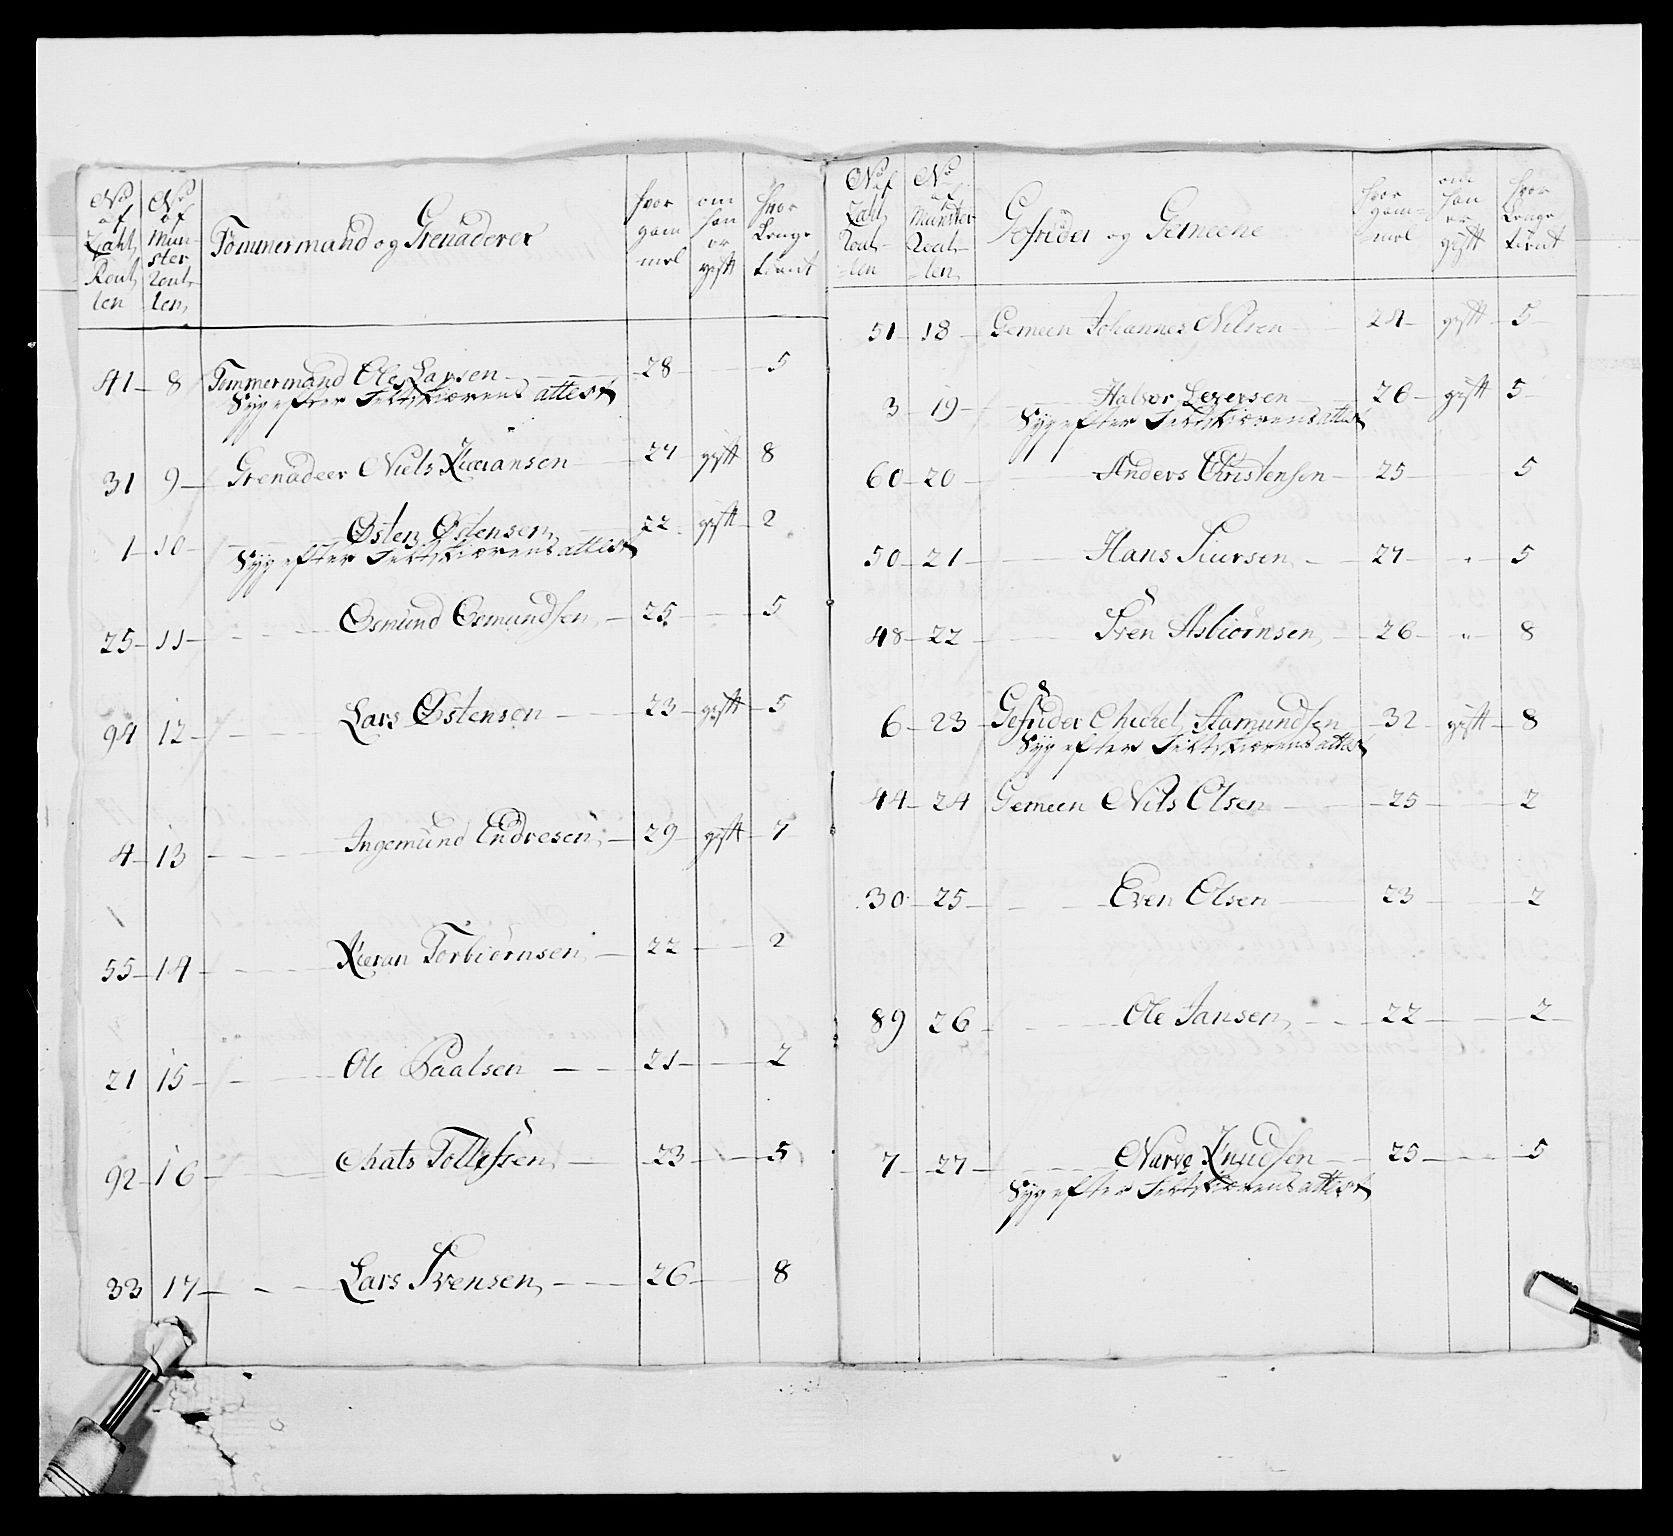 No af Zahl Roul len | No af Mun ster Roul len | Tömmermand og Grenaderer | hvor gam mel | om han er gift | hvor lenge tient
41 8 Tömmermand Ole Larsen 28 5
Syg efter Feltskiærens attest
31 9 Grenadeer Niels Kieransen 24 gift 8
1 10 Østen Østensen 22 gift 2
Syg efter Feltskiærens attest
25 11 Osmund Osmundsen 25 5
94 12 Lars Østensen 23 gift 5
4 13 Ingemund Endresen 29 gift 7
55 14 Kieran Torbiörnsen 22 2
21 15 Ole Paalsen 21 2
92 16 Mats Tollefsen 23 5
33 17 Lars Svensen 26 8
No af Zahl Roul len | No af Münster Roul len | Gefrider og Gemeene | hvor gam mel | om han er gift | hvor lenge tient
51 18 Gemeen Johannes Nilsen 24 gift 5
3 19 Halvor Leversen 26 gift 5
Syg efter Feltskiærens attest
60 20 Anders Christensen 25 5
50 21 Hans Siursen 27 " 5
48 22 Sven Asbiörnsen 26 " 8
6 23 Gefrider Michel Aamundsen 32 gift 8
Syg efter Feltskiærens attest
44 24 Gemeen Nils Olsen 25 2
30 25 Even Olsen 23 2
89 26 Ole Jansen 22 2
7 27 Narve Knudsen 25 5
Syg efter Feltskiærens attest